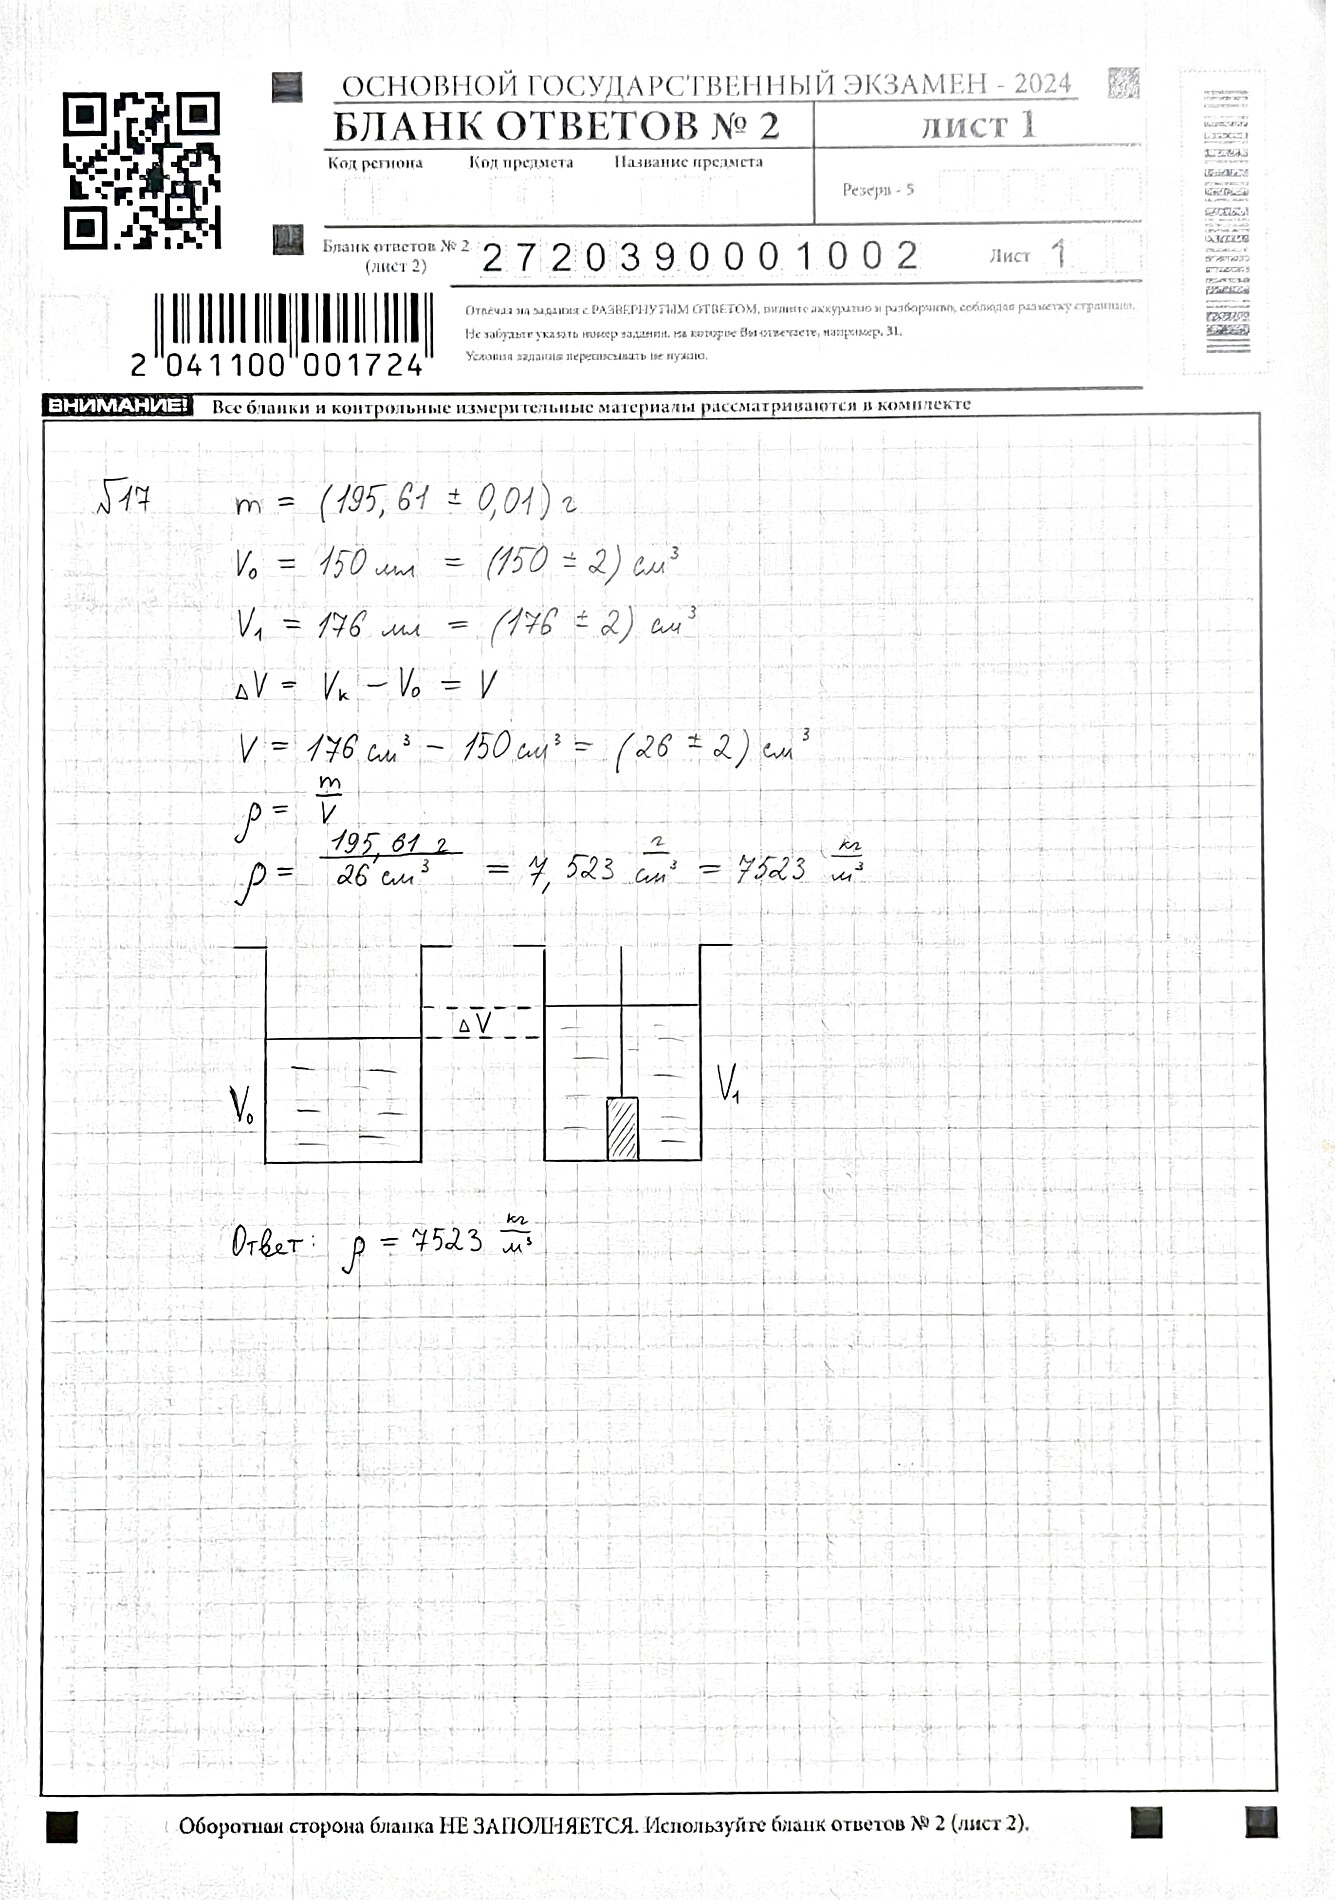 ОСНОВНОЙ ГОСУДАРСТВЕННЫЙ ЭКЗАМЕН - 2024
БЛАНК ОТВЕТОВ № 2
ЛИСТ 1
Код региона Код предмета Название предмета
Резерв - 5
Бланк ответов № 2 (лист 2) 2720390001002 Лист 1
Отвечая на задания с РАЗВЕРНУТЫМ ОТВЕТОМ, пишите аккуратно и разборчиво, соблюдая разметку страницы.
Не забудьте указать номер задания, на которое Вы отвечаете, например, 31.
Условия задания переписывать не нужно.
2 041100 001724
ВНИМАНИЕ! Все бланки и контрольные измерительные материалы рассматриваются в комплекте
№17 m = (195,61 ± 0,01) г
V₀ = 150 мл = (150 ± 2) см³
V₁ = 176 мл = (176 ± 2) см³
ΔV = Vк − V₀ = V
V = 176 см³ − 150 см³ = (26 ± 2) см³
ρ = m/V
ρ = 195,61 г / 26 см³ = 7,523 г/см³ = 7523 кг/м³
ΔV
V₀
V₁
Ответ: ρ = 7523 кг/м³
Оборотная сторона бланка НЕ ЗАПОЛНЯЕТСЯ. Используйте бланк ответов № 2 (лист 2).